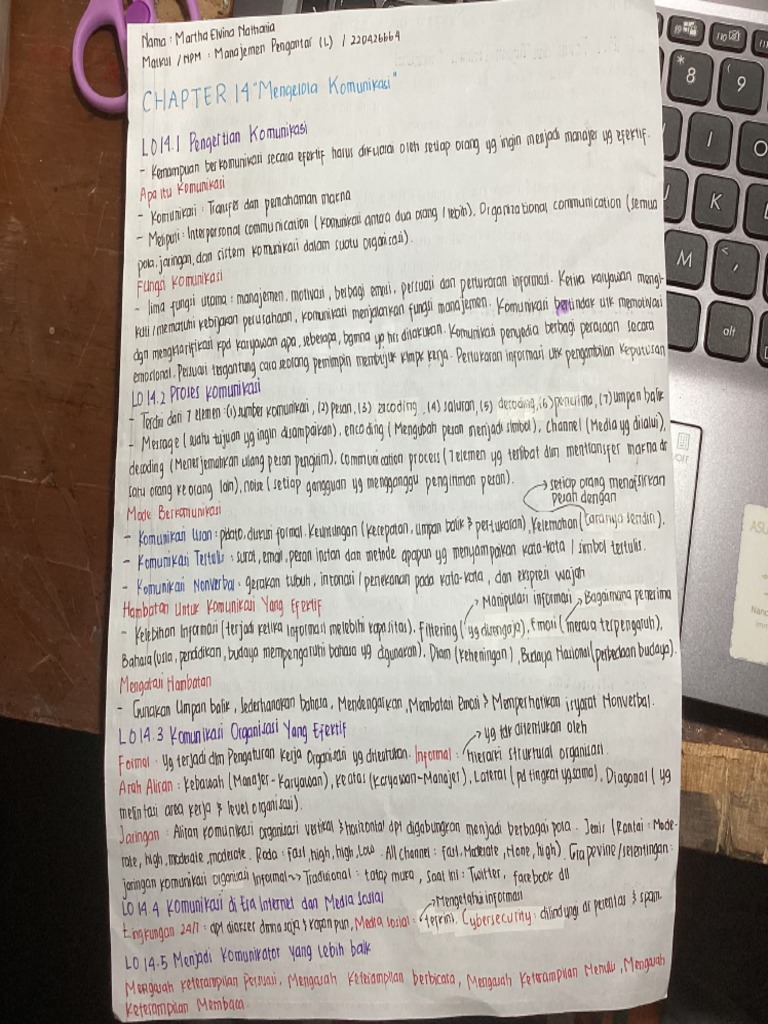 Nama : Martha Elvina Nathania
Matkul / NPM : Manajemen Pengantar (L) / 220426664
CHAPTER 14 "Mengelola Komunikasi"
LO 14.1 Pengertian Komunikasi
- Kemampuan berkomunikasi secara efektif harus dikuasai oleh setiap orang yg ingin menjadi manajer yg efektif.
Apa itu Komunikasi
- Komunikasi : Transfer dan pemahaman makna
- Meliputi : Interpersonal communication (komunikasi antara dua orang / lebih). Organizational communication (semua
pola, jaringan, dan sistem komunikasi dalam suatu organisasi).
Fungsi Komunikasi
- lima fungsi utama : manajemen, motivasi, berbagi emosi, persuasi dan pertukaran informasi. Ketika karyawan mengi-
kuti / mematuhi kebijakan perusahaan, komunikasi menjalankan fungsi manajemen. Komunikasi bertindak utk memotivasi
dgn mengklarifikasi kpd karyawan apa, seberapa, bgmna yg hrs dilakukan. Komunikasi penyedia berbagi perasaan secara
emosional. Persuasi tergantung cara seorang pemimpin membujuk klmpk kerja. Pertukaran informasi utk pengambilan keputusan
LO 14.2 Proses Komunikasi
- Terdiri dari 7 elemen : (1) sumber komunikasi, (2) pesan, (3) encoding, (4) saluran, (5) decoding, (6) penerima, (7) umpan balik
- Message (suatu tujuan yg ingin disampaikan), encoding (Mengubah pesan menjadi simbol), channel (Media yg dilalui),
decoding (Menerjemahkan ulang pesan pengirim), communication process (7 elemen yg terlibat dlm mentransfer makna dr
satu orang ke orang lain), noise (setiap gangguan yg mengganggu pengiriman pesan).
→ setiap orang menafsirkan
pesan dengan
Mode Berkomunikasi
- Komunikasi Lisan : pidato, diskusi formal. Keuntungan (kecepatan, umpan balik & pertukaran), Kelemahan (caranya sendiri).
- Komunikasi Tertulis : surat, email, pesan instan dan metode apapun yg menyampaikan kata-kata / simbol tertulis.
- Komunikasi Nonverbal : gerakan tubuh, intonasi / penekanan pada kata-kata, dan ekspresi wajah
Hambatan Untuk Komunikasi Yang Efektif
→ Manipulasi informasi → Bagaimana penerima
- Kelebihan Informasi (terjadi ketika informasi melebihi kapasitas). Filtering (yg disengaja), Emosi (merasa terpengaruh),
Bahasa (usia, pendidikan, budaya mempengaruhi bahasa yg digunakan). Diam (keheningan), Budaya Nasional (perbedaan budaya).
Mengatasi Hambatan
- Gunakan Umpan balik, Sederhanakan bahasa, Mendengarkan, Membatasi Emosi & Memperhatikan isyarat Nonverbal.
LO 14.3 Komunikasi Organisasi Yang Efektif
→ yg tdk ditentukan oleh
Formal : yg terjadi dlm Pengaturan kerja Organisasi yg ditentukan. Informal : hierarki struktural organisasi.
Arah Aliran : Kebawah (Manajer-Karyawan), Keatas (Karyawan-Manajer), Lateral (pd tingkat yg sama), Diagonal (yg
melintasi area kerja & level organisasi).
Jaringan : Aliran komunikasi organisasi vertikal & horizontal dpt digabungkan menjadi berbagai pola. Jenis (Rantai : Mode-
rate, high, moderate, moderate. Roda : Fast, high, high, Low. All channel : Fast, Moderate, None, high). Grapevine / selentingan :
jaringan komunikasi organisasi Informal ~> Tradisional : tatap muka, Saat ini : Twitter, facebook dll
LO 14.4 Komunikasi di Era Internet dan Media Sosial
→ Mengetahui informasi
Lingkungan 24/7 : dpt diakses dmna saja & kapan pun, Media Sosial : terkini, Cybersecurity : dilindungi dr peretas & spam.
LO 14.5 Menjadi Komunikator yang Lebih baik
Mengasah keterampilan Persuasi, Mengasah Keterampilan berbicara, Mengasah Keterampilan Menulis, Mengasah
Keterampilan Membaca.
8
9
I
O
K
M
alt